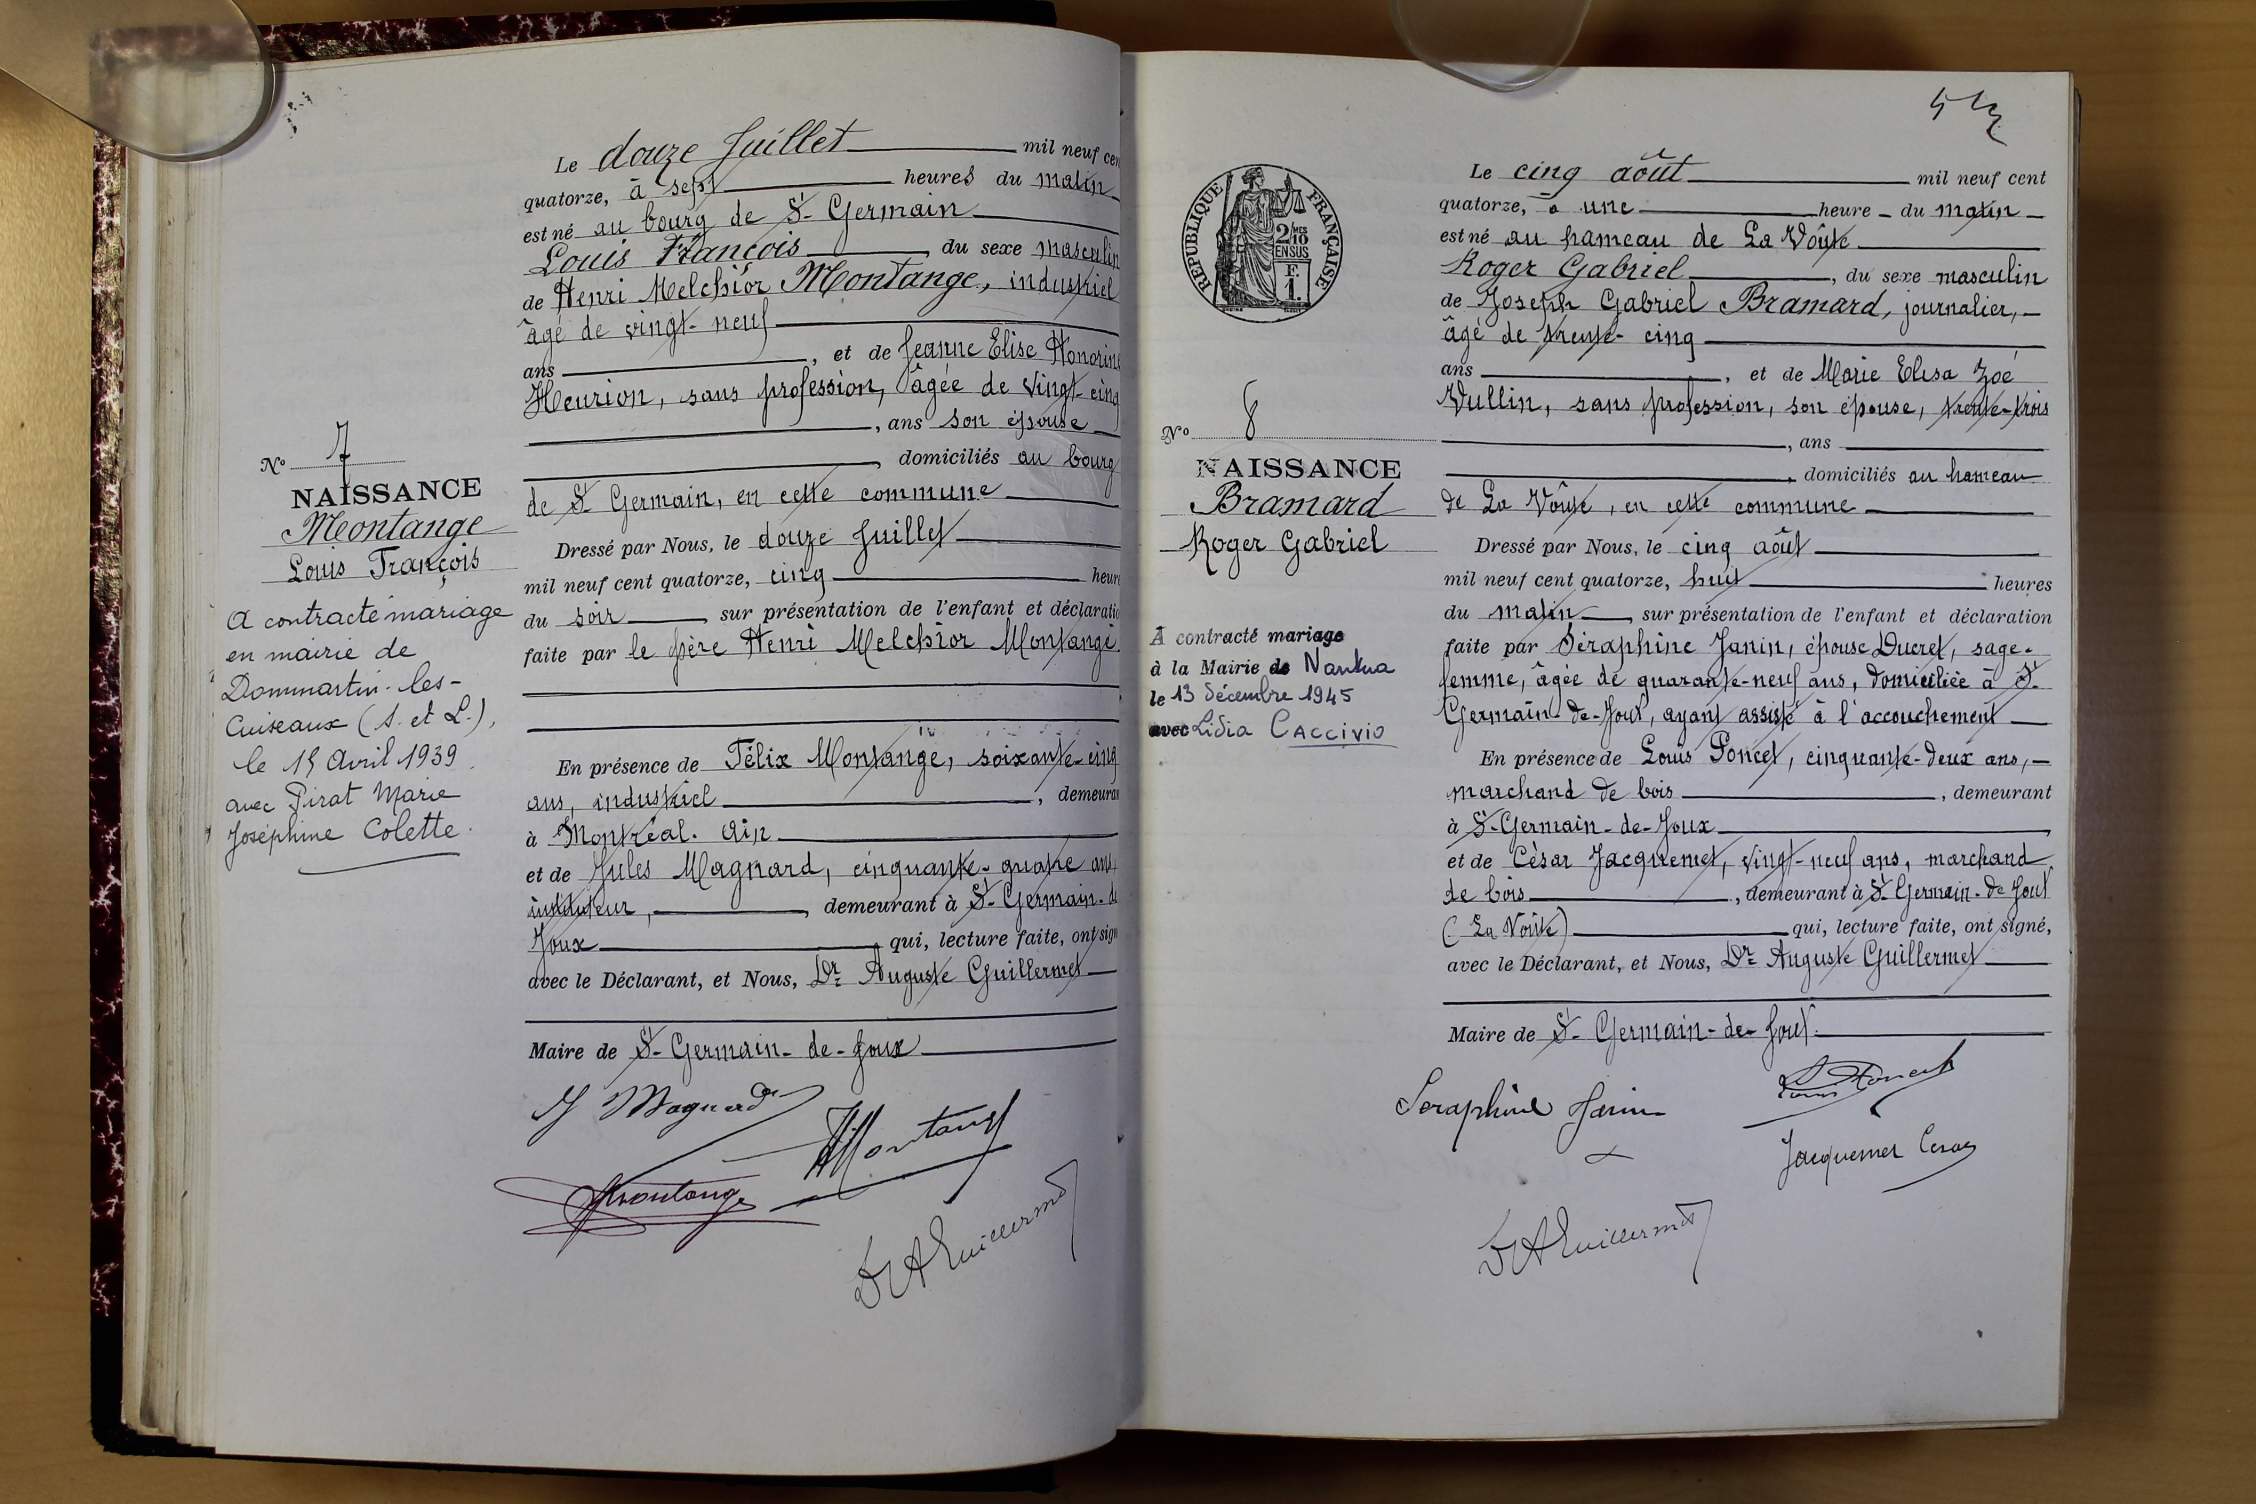 Le douze Juillet mil neuf cen
quatorze, à sept heures du matin
est né au bourg de St Germain
Louis François, du sexe masculin
de Henri Melchior Montange, industriel
âgé de vingt-neuf
ans, et de Jeanne Elise Honorine
Heurion, sans profession, âgée de vingt-cinq
, ans son épouse
, domiciliés au bourg
de St Germain, en cette commune
Dressé par Nous, le douze Juillet
mil neuf cent quatorze, cinq heure
du soir, sur présentation de l'enfant et déclaratio
faite par le père Henri Melchior Montange
En présence de Félix Montange, soixante-cinq
ans, industriel, demeuran
à Montréal. Ain
et de Jules Magnard, cinquante-quatre ans
instituteur, demeurant à St Germain-de
Joux qui, lecture faite, ont sign
avec le Déclarant, et Nous, Dr Auguste Guillermet
Maire de St-Germain-de-Joux
J Magnard
HMontange
Montange
Dr A Guillermet
No 7
NAISSANCE
Montange
Louis François
A contracté mariage
en mairie de
Dommartin-les-
Cuiseaux (S. et L.),
le 15 Avril 1939
avec Pirat Marie
Joséphine Colette.
Le cinq août mil neuf cent
quatorze, à une heure du matin
est né au hameau de La Voûte
Roger Gabriel, du sexe masculin
de Joseph Gabriel Bramard, journalier,
âgé de trente-cinq
ans, et de Marie Elisa Zoé
Vullin, sans profession, son épouse, trente-trois
, ans
, domiciliés au hameau
de La Voûte, en cette commune
Dressé par Nous, le cinq août
mil neuf cent quatorze, huit heures
du matin, sur présentation de l'enfant et déclaration
faite par Séraphine Janin, épouse Ducret, sage-
femme, âgée de quarante-neuf ans, domiciliée à St-
Germain-de-Joux, ayant assisté à l'accouchement
En présence de Louis Poncet, cinquante-deux ans,
marchand de bois, demeurant
à St-Germain-de-Joux
et de César Jacquemet, vingt-neuf ans, marchand
de bois, demeurant à St Germain-de Joux
(La Voûte) qui, lecture faite, ont signé,
avec le Déclarant, et Nous, Dr Auguste Guillermet
Maire de St-Germain-de-Joux.
Séraphine Janin
Louis Poncet
Jacquemet César
Dr A Guillermet
RÉPUBLIQUE FRANÇAISE
2/10 MES
EN SUS
F.
1.
No 8
NAISSANCE
Bramard
Roger Gabriel
A contracté mariage
à la Mairie de Nantua
le 13 décembre 1945
avec Lidia CACCIVIO